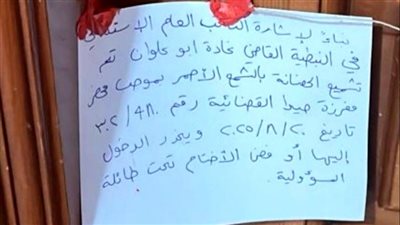 بناءً لإشارة النائب العام الاستئنافي
في النبطية القاضي غادة ابو علوان تم
تشميع الحضانة بالشمع الأحمر بموجب محضر
مفرزة صيدا القضائية رقم ٣٠٢/٤٨٠
تاريخ ٢٠٢٥/٨/٢٠ ويحذر الدخول
إليها أو فض الأختام تحت طائلة
المسؤولية